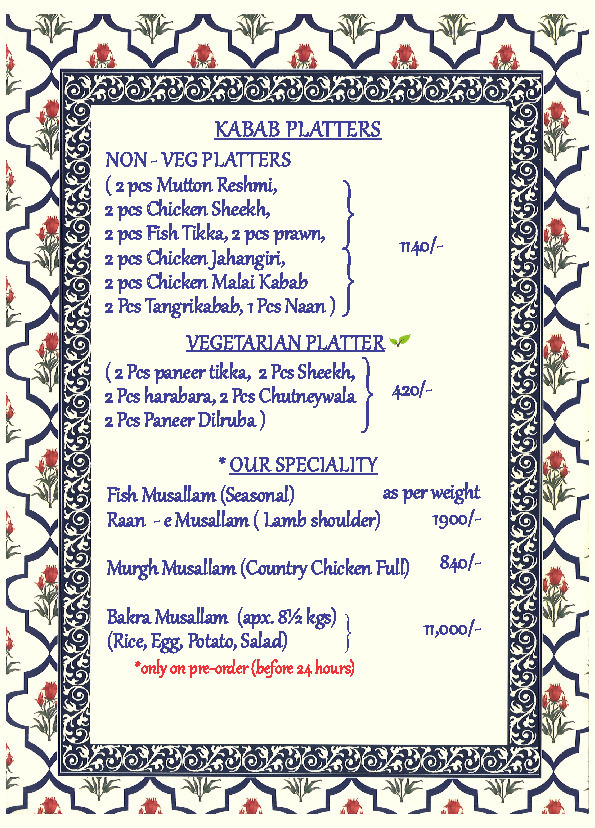 KABAB PLATTERS
NON - VEG PLATTERS
( 2 pcs Mutton Reshmi,
2 pcs Chicken Sheekh,
2 pcs Fish Tikka, 2 pcs prawn,
1140/-
2 pcs Chicken Jahangiri,
2 pcs Chicken Malai Kabab
2 Pcs Tangrikabab, 1 Pcs Naan )
VEGETARIAN PLATTER
( 2 Pcs paneer tikka, 2 Pcs Sheekh,
2 Pcs harabara, 2 Pcs Chutneywala 420/-
2 Pcs Paneer Dilruba )
* OUR SPECIALITY
Fish Musallam (Seasonal) as per weight
Raan - e Musallam ( Lamb shoulder) 1900/-
Murgh Musallam (Country Chicken Full) 840/-
Bakra Musallam (apx. 8½ kgs)
(Rice, Egg, Potato, Salad) 11,000/-
*only on pre-order (before 24 hours)